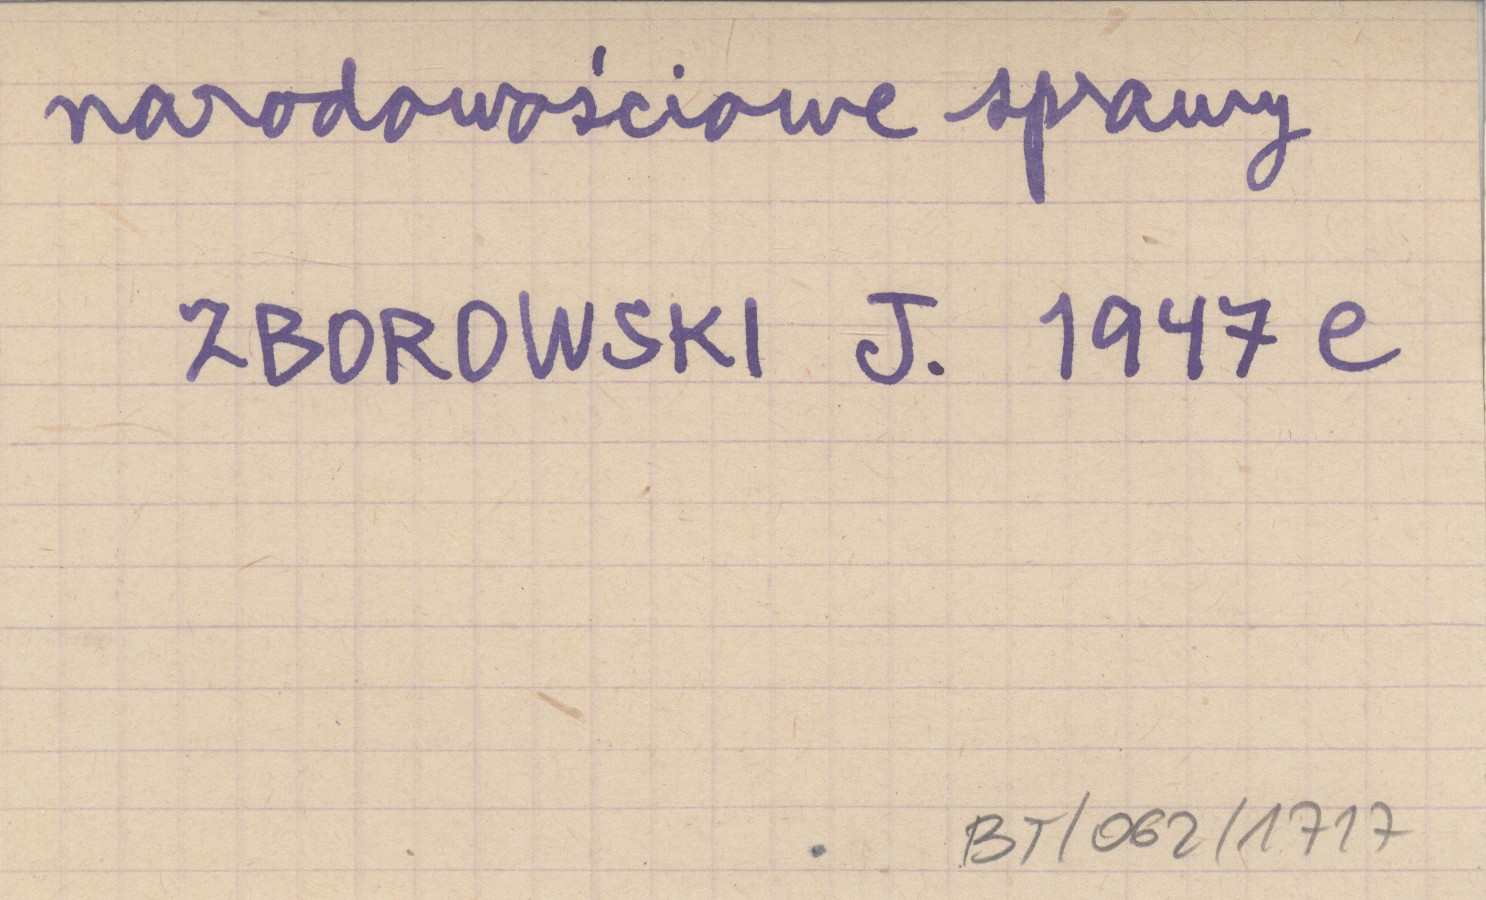 narodowościowe sprawy
ZBOROWSKI J. 1947 e
BT/062/1717